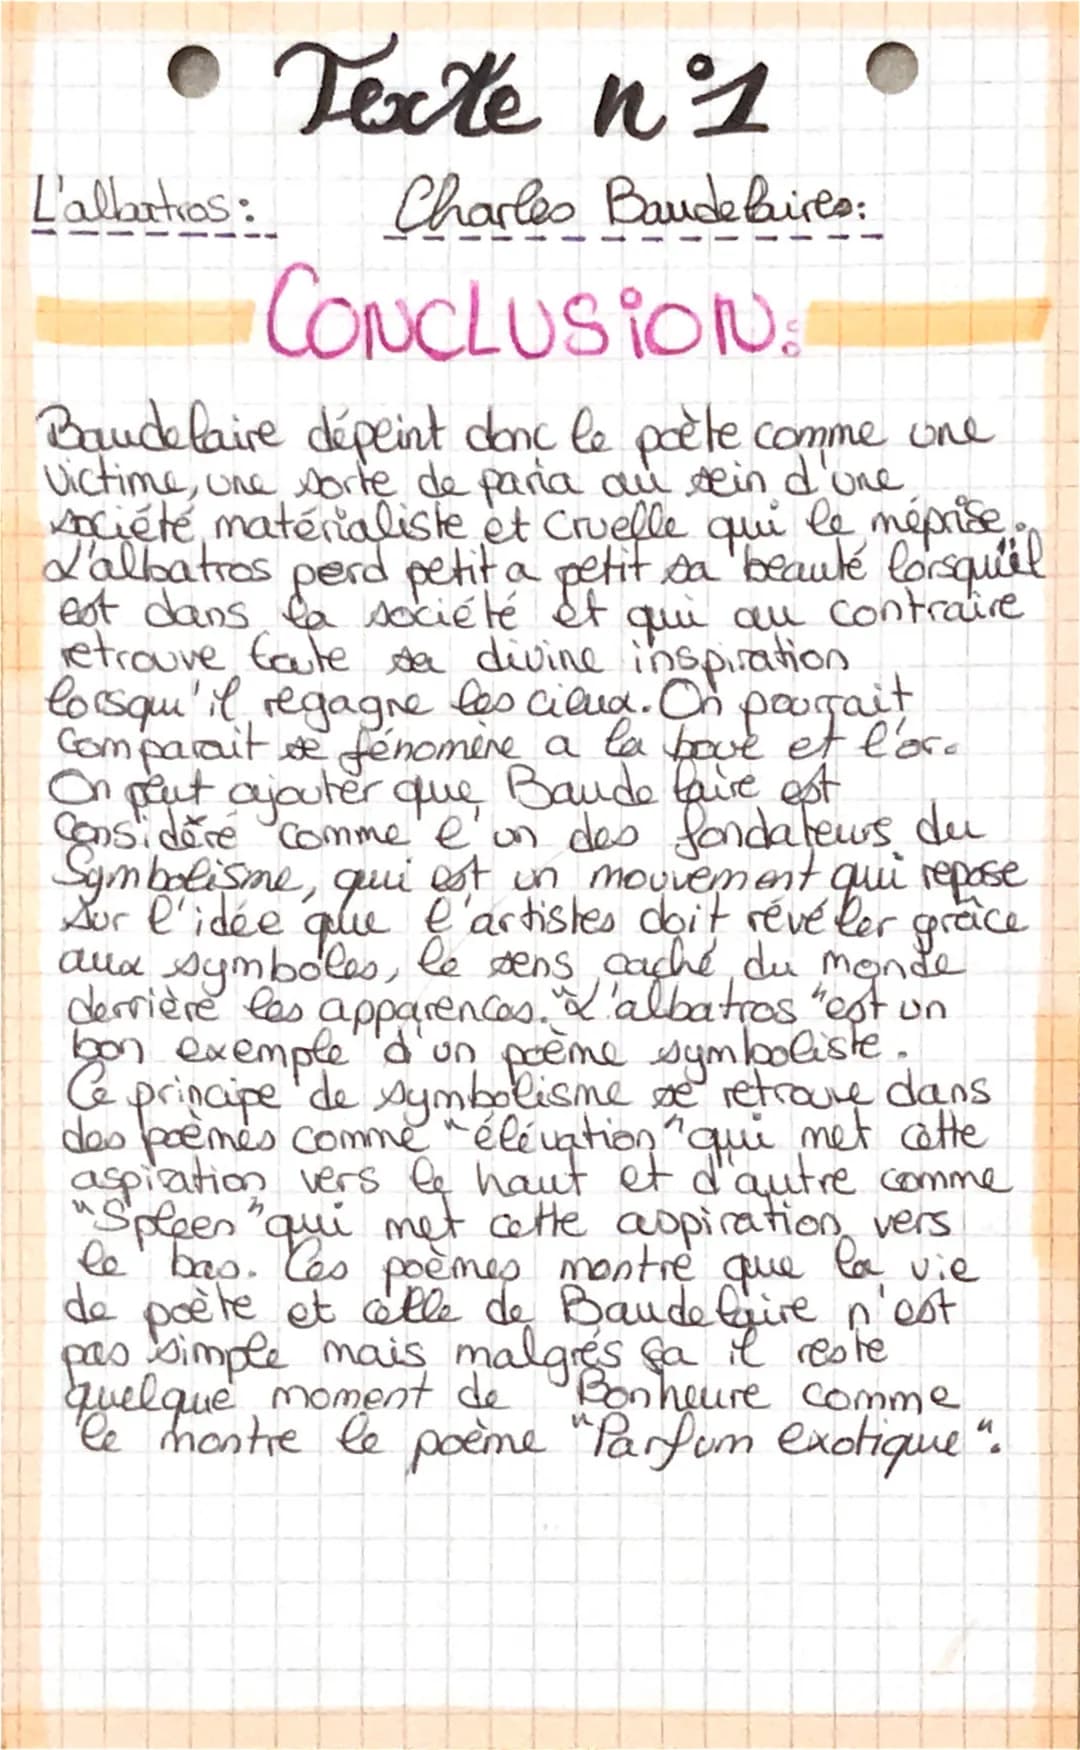 Texte n°1
L'albatros: Charles Baudelaires:
CONCLUSION:
Baudelaire dépeint donc le poète comme une
victime, une sorte de paria au sein d'une
société matérialiste et cruelle qui le méprise.
L'albatros perd petit a petit sa beauté lorsqu'il
est dans la société et qui au contraire
retrouve toute sa divine inspiration
lorsqu'il regagne les cieux. On pourrait
comparait se fénomène a la boue et l'or.
On peut ajouter que Baudelaire est
considéré comme l'un des fondateurs du
Symbolisme, qui est un mouvement qui repose
sur l'idée que l'artistes doit révéler grâce
aux symboles, le sens caché du monde
derrière les apparences. "L'albatros" est un
bon exemple d'un poème symboliste.
Ce principe de symbolisme se retrouve dans
des poèmes comme "élévation" qui met cette
aspiration vers le haut et d'autre comme
"Spleen" qui met cette aspiration vers
le bas. Ces poèmes montre que la vie
de poète et celle de Baudelaire n'est
pas simple mais malgrés ça il reste
quelque moment de Bonheure comme
le montre le poème "Parfum exotique".